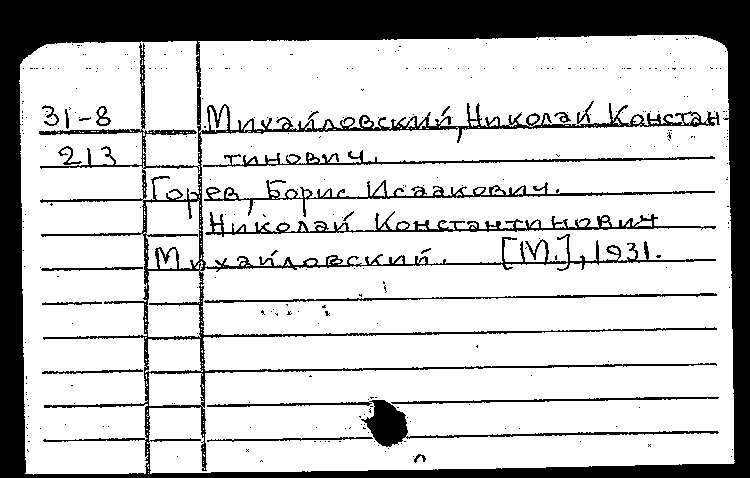 31-8 Михайловский, Николай Констан-
213 тинович.
Горев, Борис Исаакович.
Николай Константинович
Михайловский. [М.], 1931.